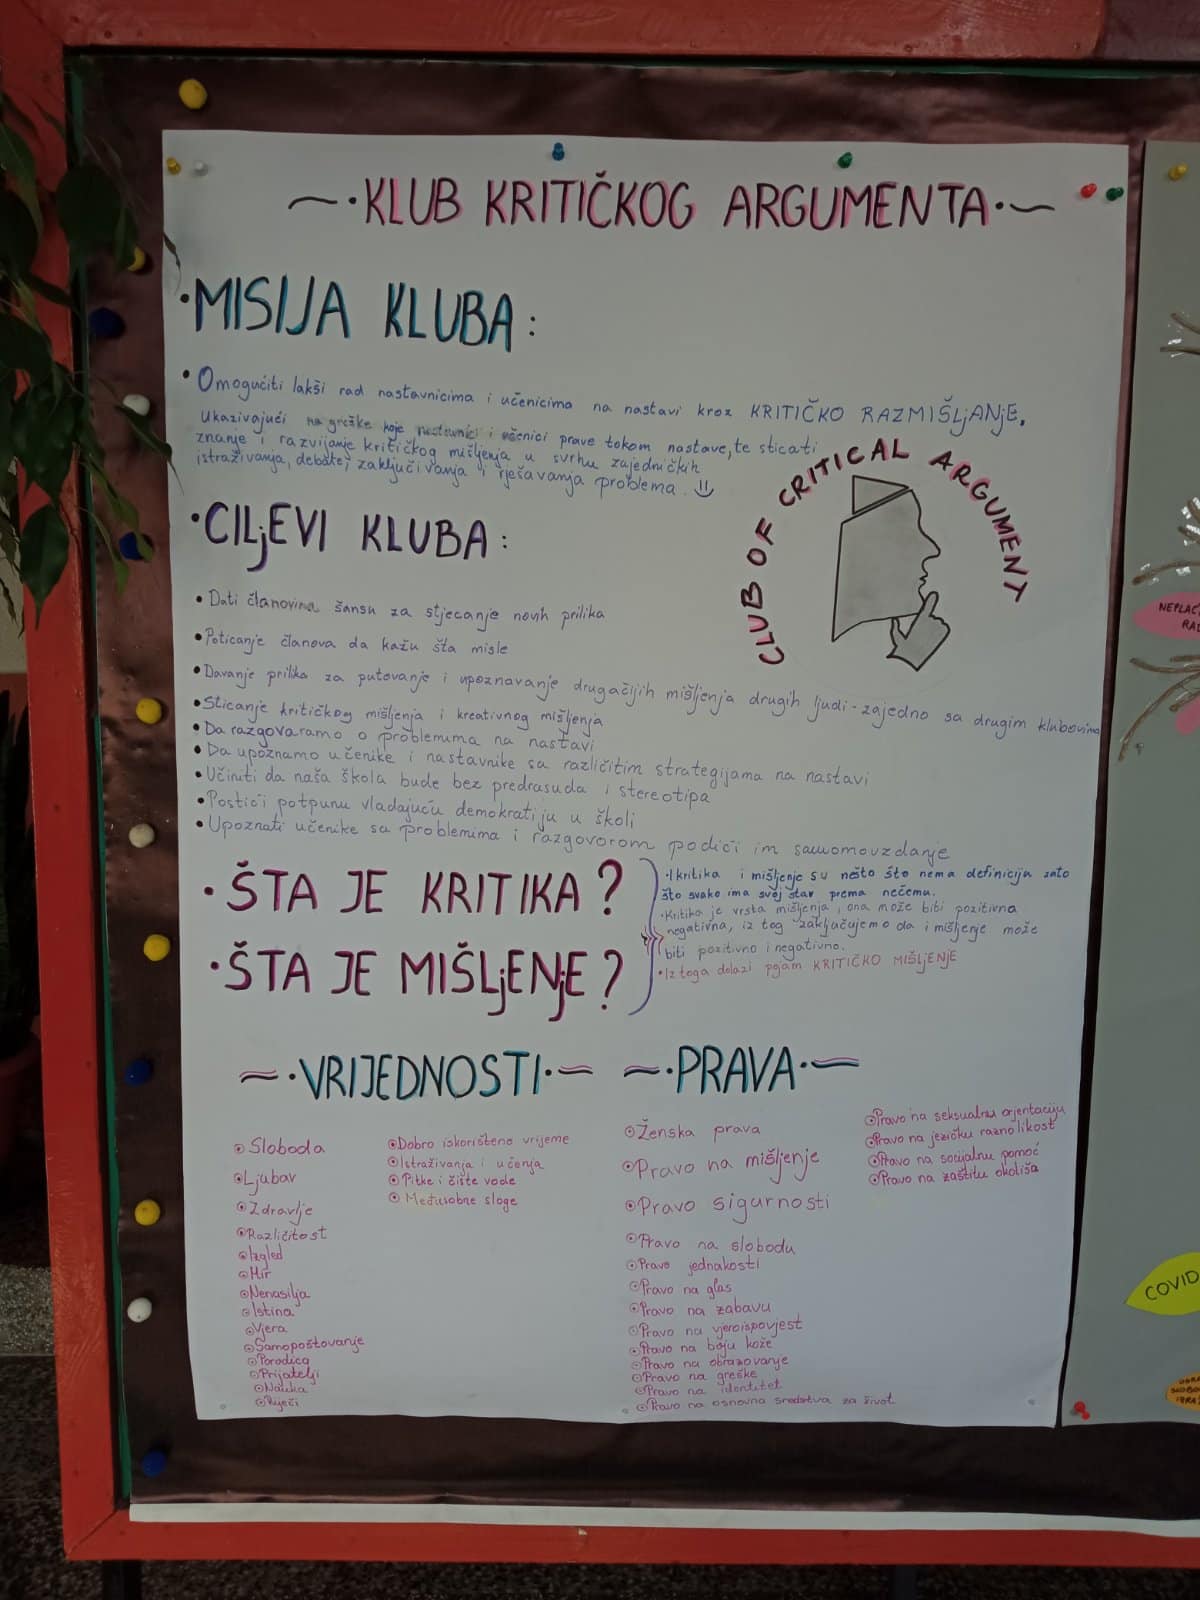 KLUB KRITIČKOG ARGUMENTA
MISIJA KLUBA:
Omogućiti lakši rad nastavnicima i učenicima na nastavi kroz KRITIČKO RAZMIŠLjANjE,
ukazivajući na greške koje nastavnici i učenici prave tokom nastave, te sticati
znanje i razvijanje kritičkog mišljenja u svrhu zajedničkih
istraživanja, debate, zaključivanja i rješavanja problema.
CLUB OF CRITICAL ARGUMENT
CILjEVI KLUBA:
Dati članovima šansu za stjecanje novih prilika
Poticanje članova da kažu šta misle
Davanje prilika za putovanje i upoznavanje drugačijih mišljenja drugih ljudi - zajedno sa drugim klubovima
Sticanje kritičkog mišljenja i kreativnog mišljenja
Da razgovaramo o problemima na nastavi
Da upoznamo učenike i nastavnike sa različitim strategijama na nastavi
Učiniti da naša škola bude bez predrasuda i stereotipa
Postići potpunu vladajuću demokratiju u školi
Upoznati učenike sa problemima i razgovorom podići im samomouzdanje
ŠTA JE KRITIKA?
ŠTA JE MIŠLjENjE?
I kritika i mišljenje su nešto što nema definiciju zato
što svako ima svoj stav prema nečemu.
Kritika je vrsta mišljenja, ona može biti pozitivna
negativna, iz tog zaključujemo da i mišljenje može
biti pozitivno i negativno.
Iz toga dolazi pojam KRITIČKO MIŠLjENjE
VRIJEDNOSTI
Sloboda
Ljubav
Zdravlje
Različitost
Izgled
Mir
Nenasilja
Istina
Vjera
Samopoštovanje
Porodica
Prijatelji
Nauka
Riječi
Dobro iskorišteno vrijeme
Istraživanja i učenja
Pitke i čiste vode
Međusobne sloge
PRAVA
Ženska prava
Pravo na mišljenje
Pravo sigurnosti
Pravo na slobodu
Pravo jednakosti
Pravo na glas
Pravo na zabavu
Pravo na vjeroispovjest
Pravo na boju kože
Pravo na obrazovanje
Pravo na greške
Pravo na identitet
Pravo na osnovna sredstva za život
Pravo na seksualnu orjentaciju
Pravo na jezičku raznolikost
Pravo na socijalnu pomoć
Pravo na zaštitu okoliša
COVID